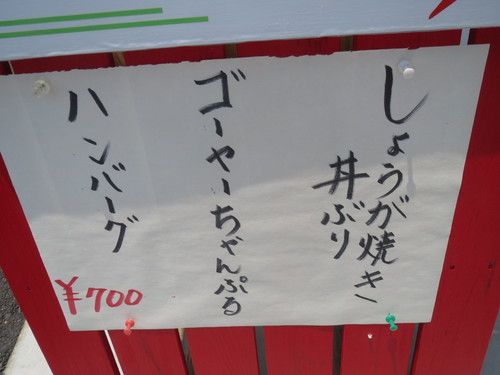 しょうが焼き
丼ぶり
ゴーヤーちゃんぷる
ハンバーグ
¥700